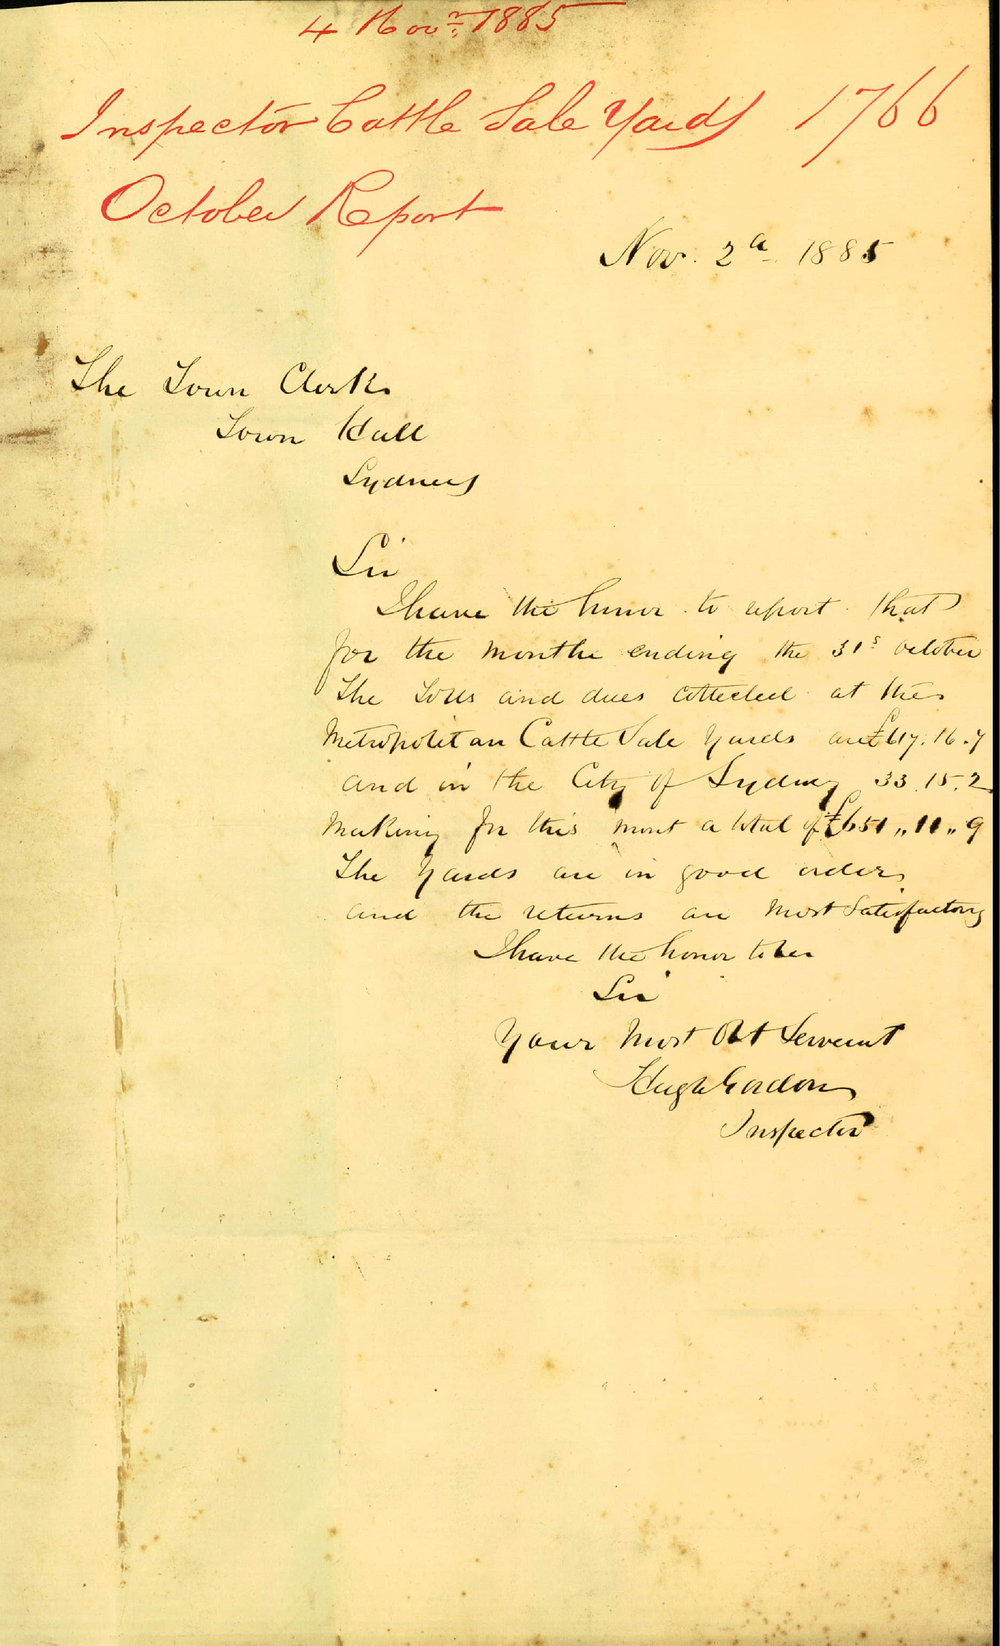 4 Novr. 1885
Inspector Cattle Sale Yards 1766
October Report
Nov. 2d 1885
The Town Clerk
Town Hall
Sydney
Sir
I have the honor to report that
for the monthe ending the 31s october
The Tolls and dues collected at the
Metropolitan Cattle Sale Yards are £617.16.7
and in the City of Sydney 33.15.2
Making for this mont a total of £651,,11,,9
The Yards are in good order
and the returns are Most Satisfactory
I have the honor to be
Sir
Your Most Obt Servant
Hugh Gordon
Inspector